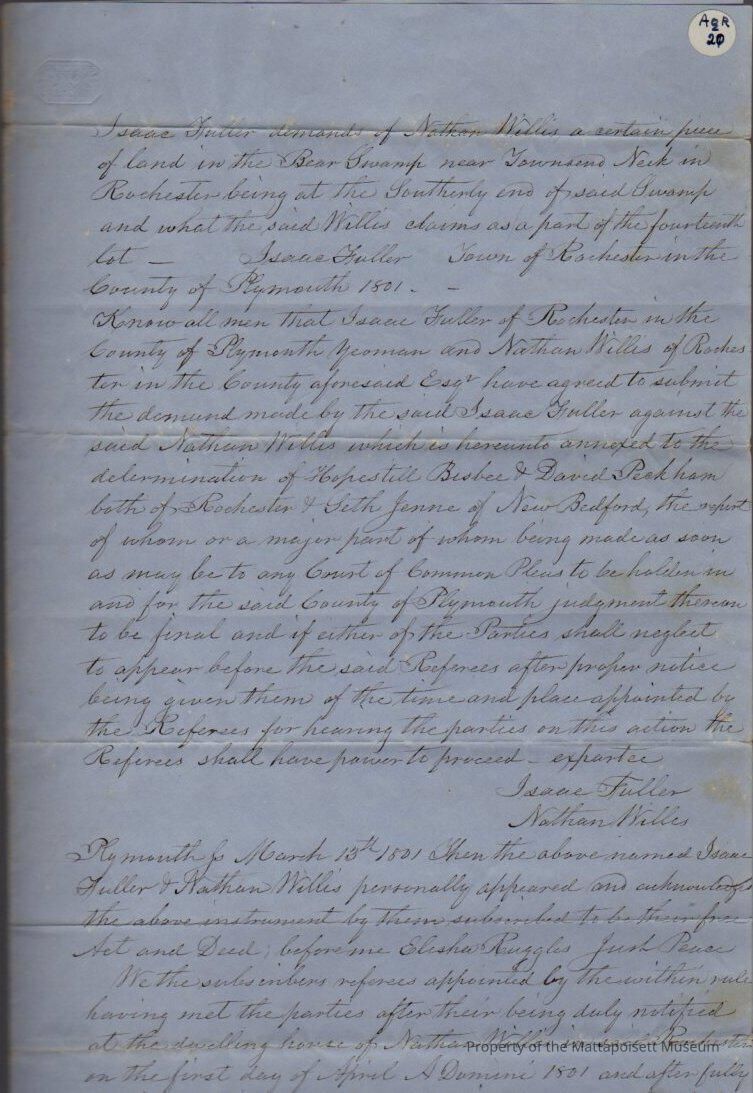 AgR
2
20
Isaac Fuller demands of Nathan Willis a certain piece
of land in the Bear Swamp near Townsend Neck in
Rochester being at the Southerly end of said Swamp
and what the said Willis claims as a part of the fourteenth
lot — Isaac Fuller Town of Rochester in the
County of Plymouth 1801. —
Know all men that Isaac Fuller of Rochester in the
County of Plymouth Yeoman and Nathan Willis of Roches
ter in the County aforesaid Esqr have agreed to submit
the demand made by the said Isaac Fuller against the
said Nathan Willis which is hereunto annexed to the
determination of Hopestill Bisbee & David Peckham
both of Rochester & Seth Jenne of New Bedford, the report
of whom or a major part of whom being made as soon
as may be to any Court of Common Pleas to be holden in
and for the said County of Plymouth judgment thereon
to be final and if either of the Parties shall neglect
to appear before the said Referees after proper notice
being given them of the time and place appointed by
the Referees for hearing the parties on this action the
Referees shall have power to proceed – expartee
Isaac Fuller
Nathan Willis
Plymouth Ss March 13th 1801 Then the above named Isaac
Fuller & Nathan Willis personally appeared and acknowledgd
the above instrument by them subscribed to be their free
Act and Deed; before me Elisha Ruggles Just Peace
We the subscribers referees appointed by the within rule
having met the parties after their being duly notified
at the dwelling house of Nathan Willis in said Rochester
on the first day of April A Domini 1801 and after fully
Property of the Mattapoisett Museum